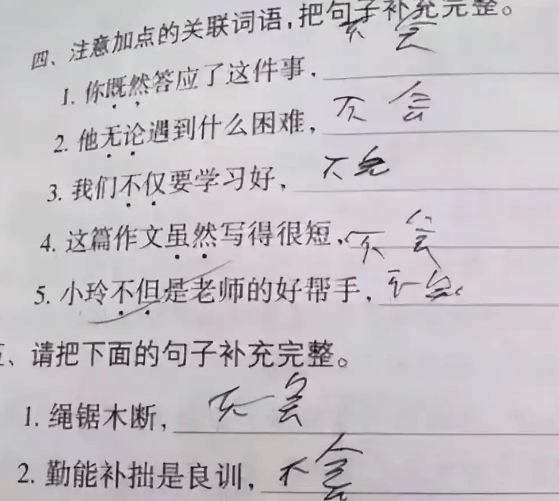 四、注意加点的关联词语，把句子补充完整。
1. 你既然答应了这件事，不会
2. 他无论遇到什么困难，不会
3. 我们不仅要学习好，不会
4. 这篇作文虽然写得很短，不会
5. 小玲不但是老师的好帮手，不会
、请把下面的句子补充完整。
1. 绳锯木断，不会
2. 勤能补拙是良训，不会